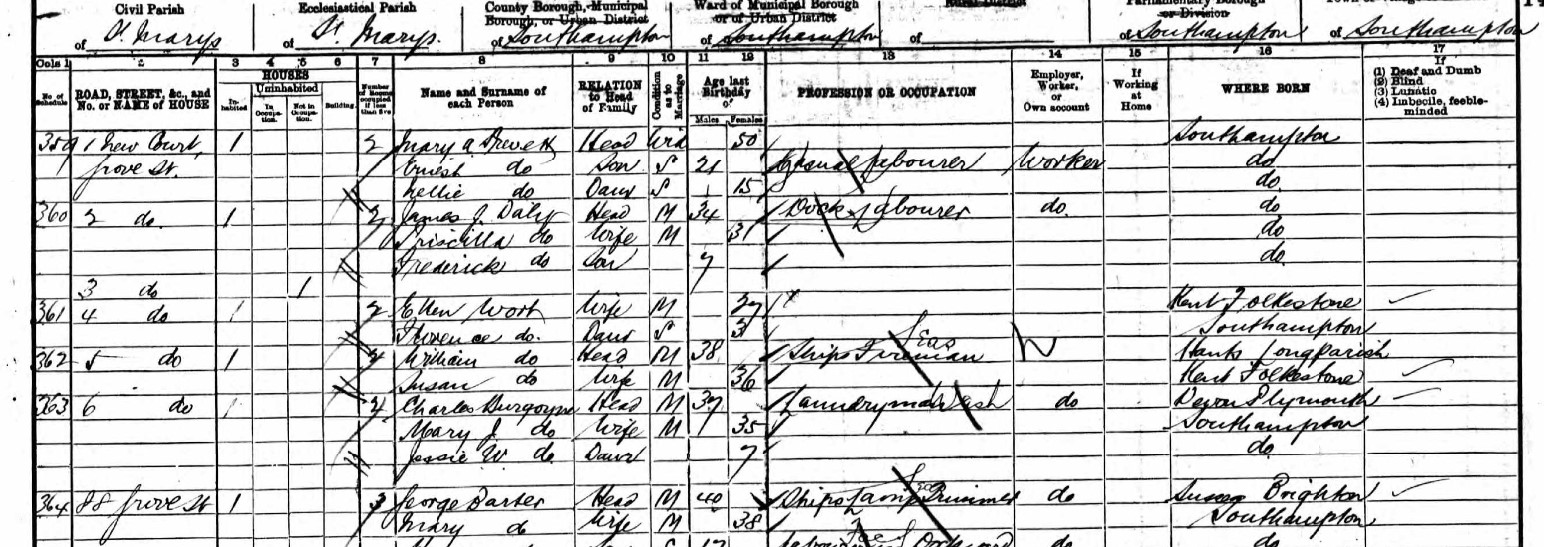 Civil Parish Ecclesiastical Parish County Borough, Municipal Borough, or Urban District Ward of Municipal Borough or of Urban District Rural District Parliamentary Borough or Division
of St. Marys of St. Marys of Southampton of Southampton of of Southampton of Southampton
Cols 1 2 3 4 5 6 7 8 9 10 11 12 13 14 15 16 17
No. of Schedule ROAD, STREET, &c., and No. or NAME of HOUSE HOUSES Inhabited Uninhabited In Occupa-tion. Not in Occupa-tion. Building Number of Rooms occupied if less than five Name and Surname of each Person RELATION to Head of Family Condition as to Marriage Age last Birthday of Males Females PROFESSION OR OCCUPATION Employer, Worker, or Own account If Working at Home WHERE BORN If (1) Deaf and Dumb (2) Blind (3) Lunatic (4) Imbecile, feeble-minded
359 1 New Court, 1 2 Mary A Head Wid 50 Southampton
Grove St. Ernest do Son S 21 Labourer Worker do
Nellie do Daur S 15 do
360 2 do. 1 2 James J. Daly Head M 34 Dock Labourer do. do
Priscilla do Wife M 31 do
Frederick do Son 7 do
3 do 1
361 4 do 1 2 Ellen Wort Wife M 37 Kent Folkestone
Florence do. Daur S 3 Southampton
362 5 do 1 4 William do Head M 38 Ships Fireman Hants Longparish
Susan do Wife M 36 Kent Folkestone
363 6 do 1 4 Charles Burgoyne Head M 37 Laundryman Wash do Devon Plymouth
Mary J. do Wife M 35 Southampton
Jessie W do Daur 7 do
364 88 Grove St 1 3 George Barter Head M 40 Ships Lamp Trimmer do Sussex Brighton
Mary do Wife M 38 Southampton